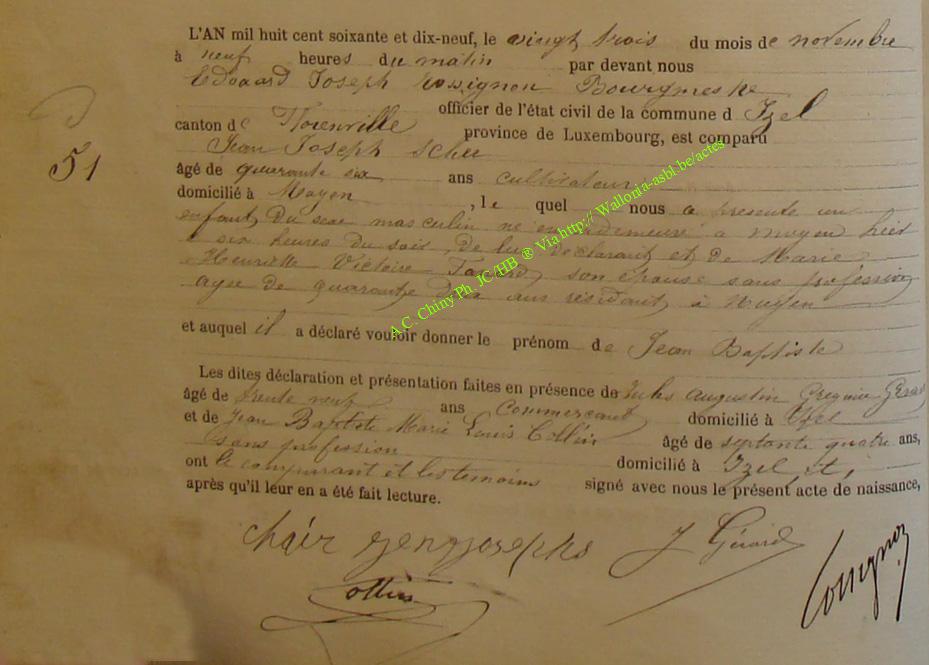 L'AN mil huit cent soixante et dix-neuf, le vingt trois du mois de novembre
à neuf heures du matin par devant nous
Edouard Joseph Rossignon Bourgmestre
officier de l'état civil de la commune d Izel
canton de Florenville province de Luxembourg, est comparu
Jean Joseph
51
âgé de quarante six ans cultivateur
domicilié à Moyen, le quel nous a présenté un
enfant du sexe masculin né en sa demeure à moyen hier
à six heures du soir, de lui déclarant et de Marie
Henriette Victoire son épouse sans profession
agée de quarante deux ans résidant à Moyen
et auquel il a déclaré vouloir donner le prénom de Jean Baptiste
Les dites déclaration et présentation faites en présence de Jules Augustin Grégoire Gérard
âgé de trente neuf ans Commercant domicilié à Izel
et de Jean Baptiste Marie Louis Collin âgé de septante quatre ans,
sans profession domicilié à Izel et,
ont le comparant et les témoins signé avec nous le présent acte de naissance,
après qu'il leur en a été fait lecture.
J Gérard
Collin
A.C. Chiny Ph. JC/HB ® Via http:// Wallonia-asbl.be/actes